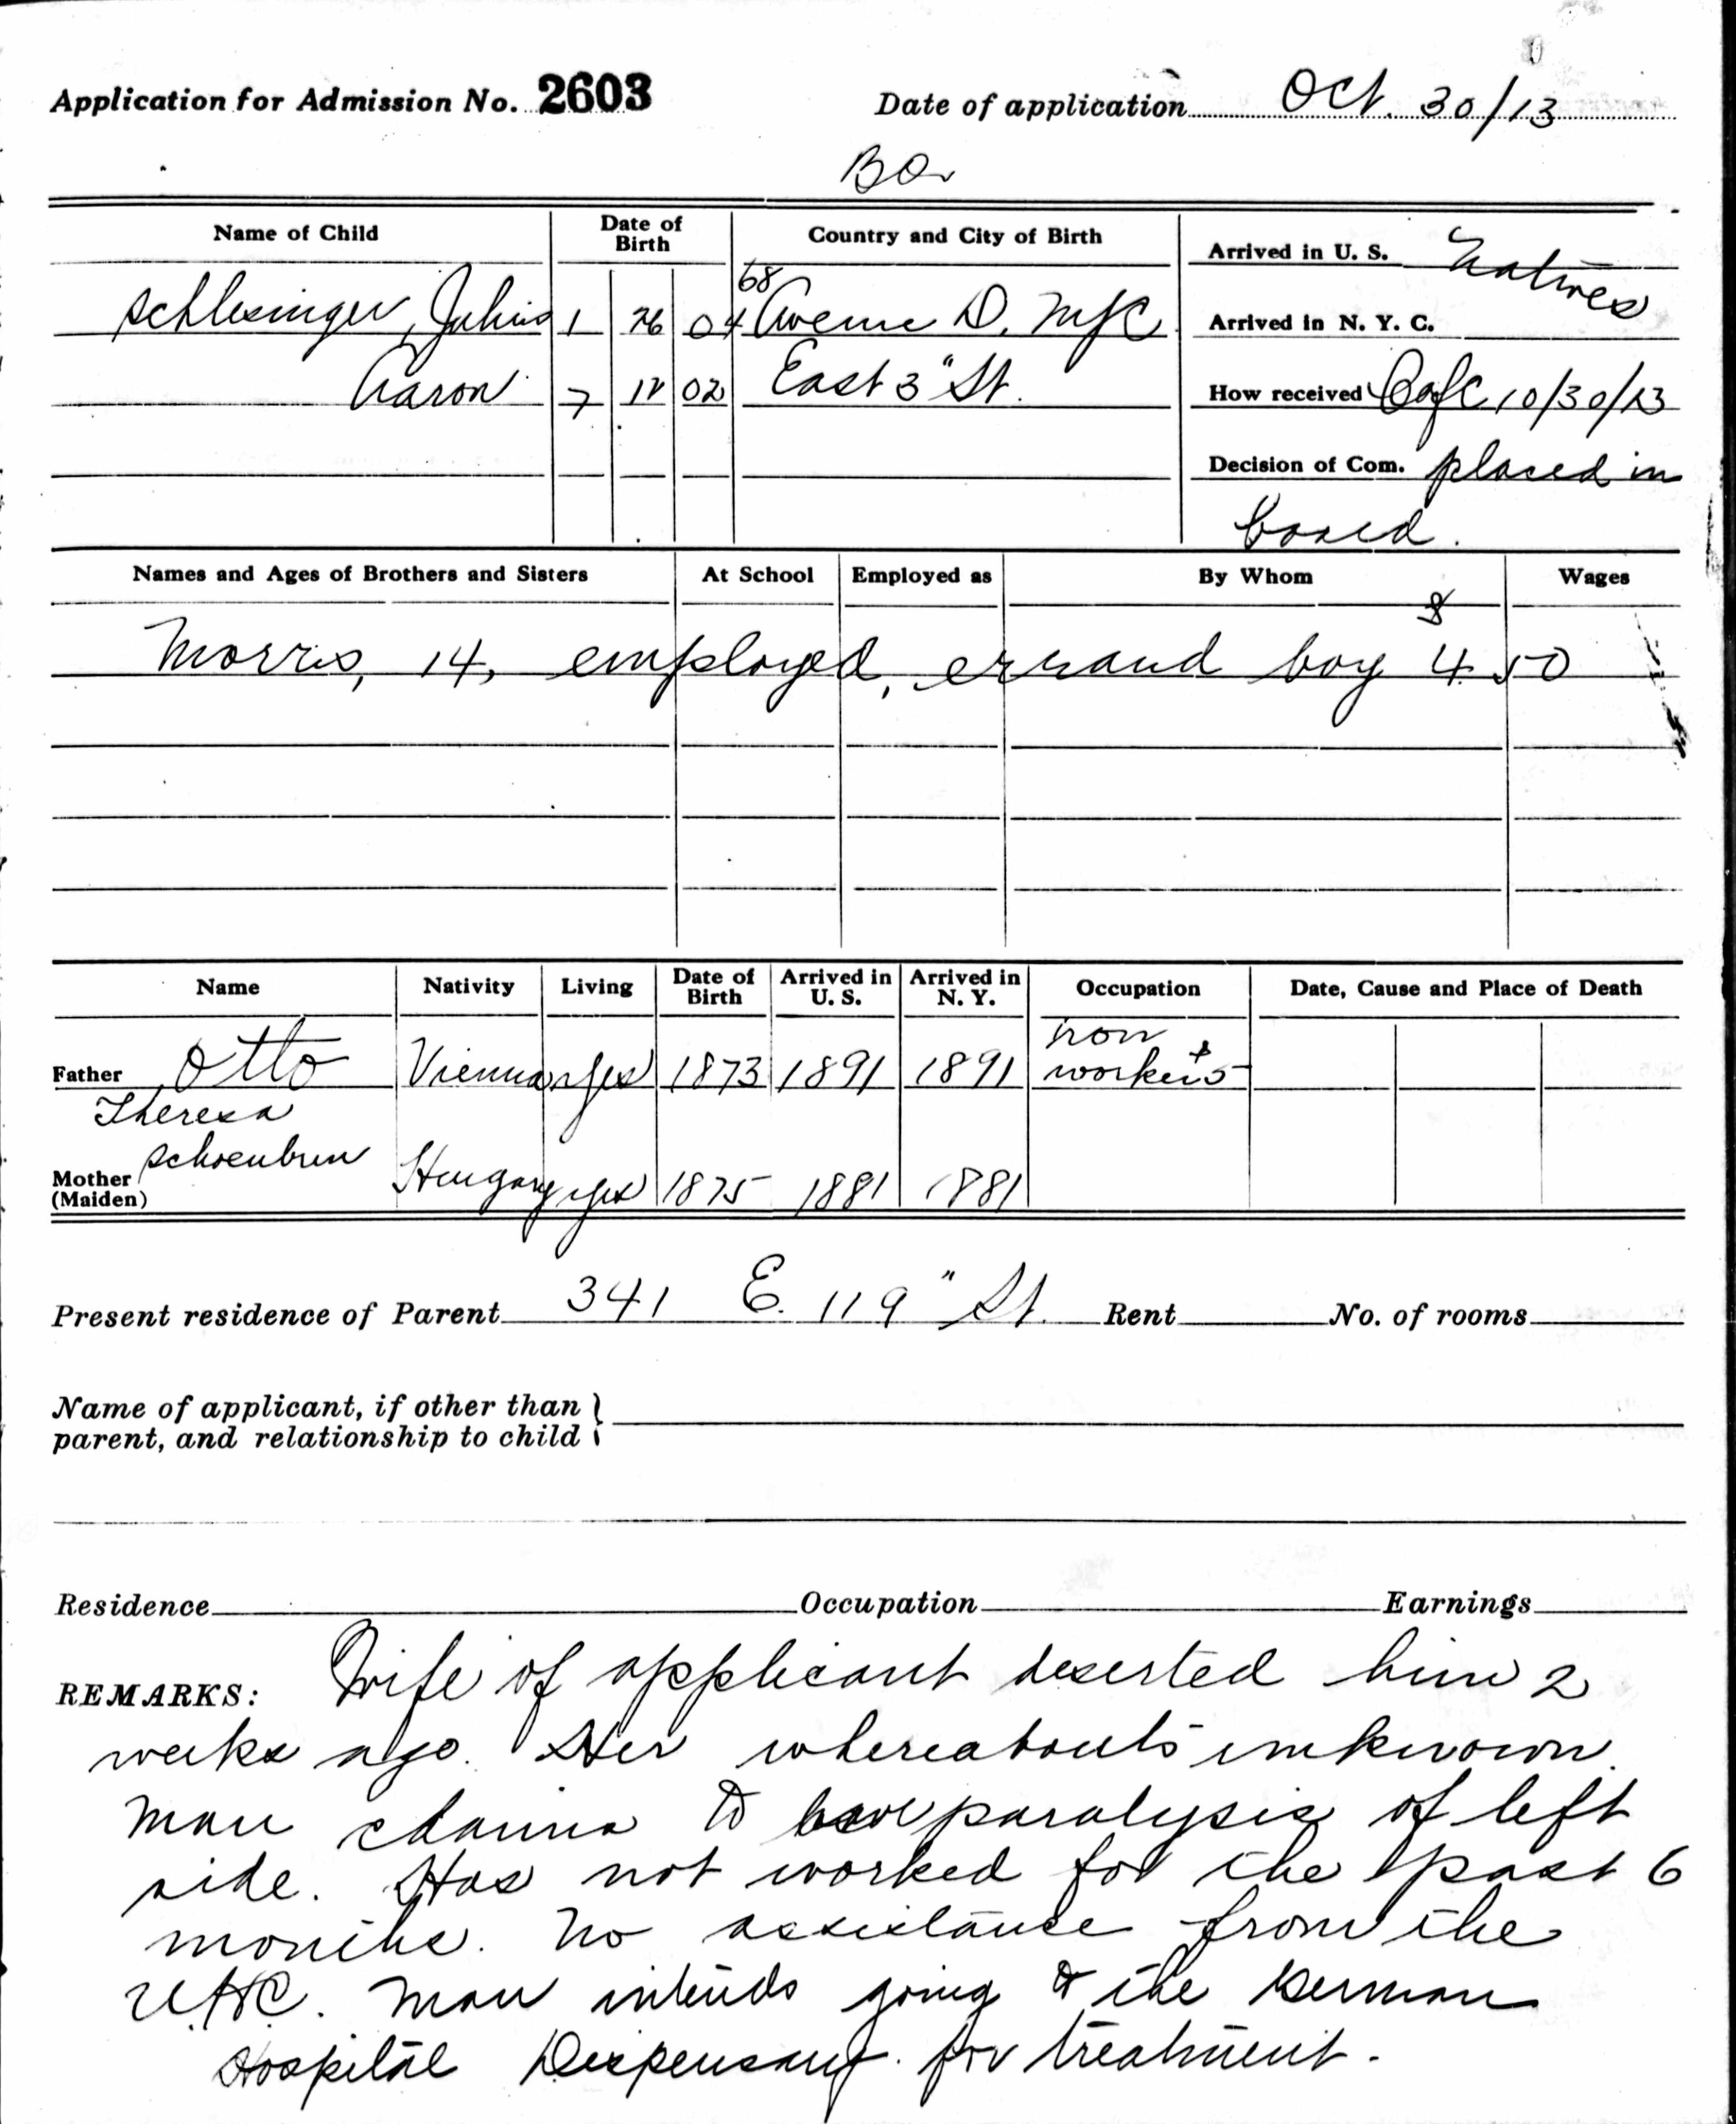 Application for Admission No. 2603 Date of application Oct. 30/13
Name of Child Date of Birth Country and City of Birth Arrived in U. S. Natives
Schlesinger, Julius 1 26 04 68 Avenue D. NYC Arrived in N. Y. C.
Aaron 7 12 02 East 3" St. How received 10/30/13
Decision of Com. placed in
board.
Names and Ages of Brothers and Sisters At School Employed as By Whom Wages
Morris, 14, employed, errand boy $ 4 50
Name Nativity Living Date of Birth Arrived in U. S. Arrived in N. Y. Occupation Date, Cause and Place of Death
Father Otto Vienna yes 1873 1891 1891 iron worker
Theresa
Mother (Maiden) Schoenbrun Hungary yes 1875 1881 1881
Present residence of Parent 341 E. 119" St. Rent No. of rooms
Name of applicant, if other than
parent, and relationship to child
Residence Occupation Earnings
REMARKS: Wife of applicant deserted him 2
weeks ago. Her whereabouts unknown.
Man claims to have paralysis of left
side. Has not worked for the past 6
months. No assistance from the
U.H.C. Man intends going to the German
Hospital Dispensary for treatment.